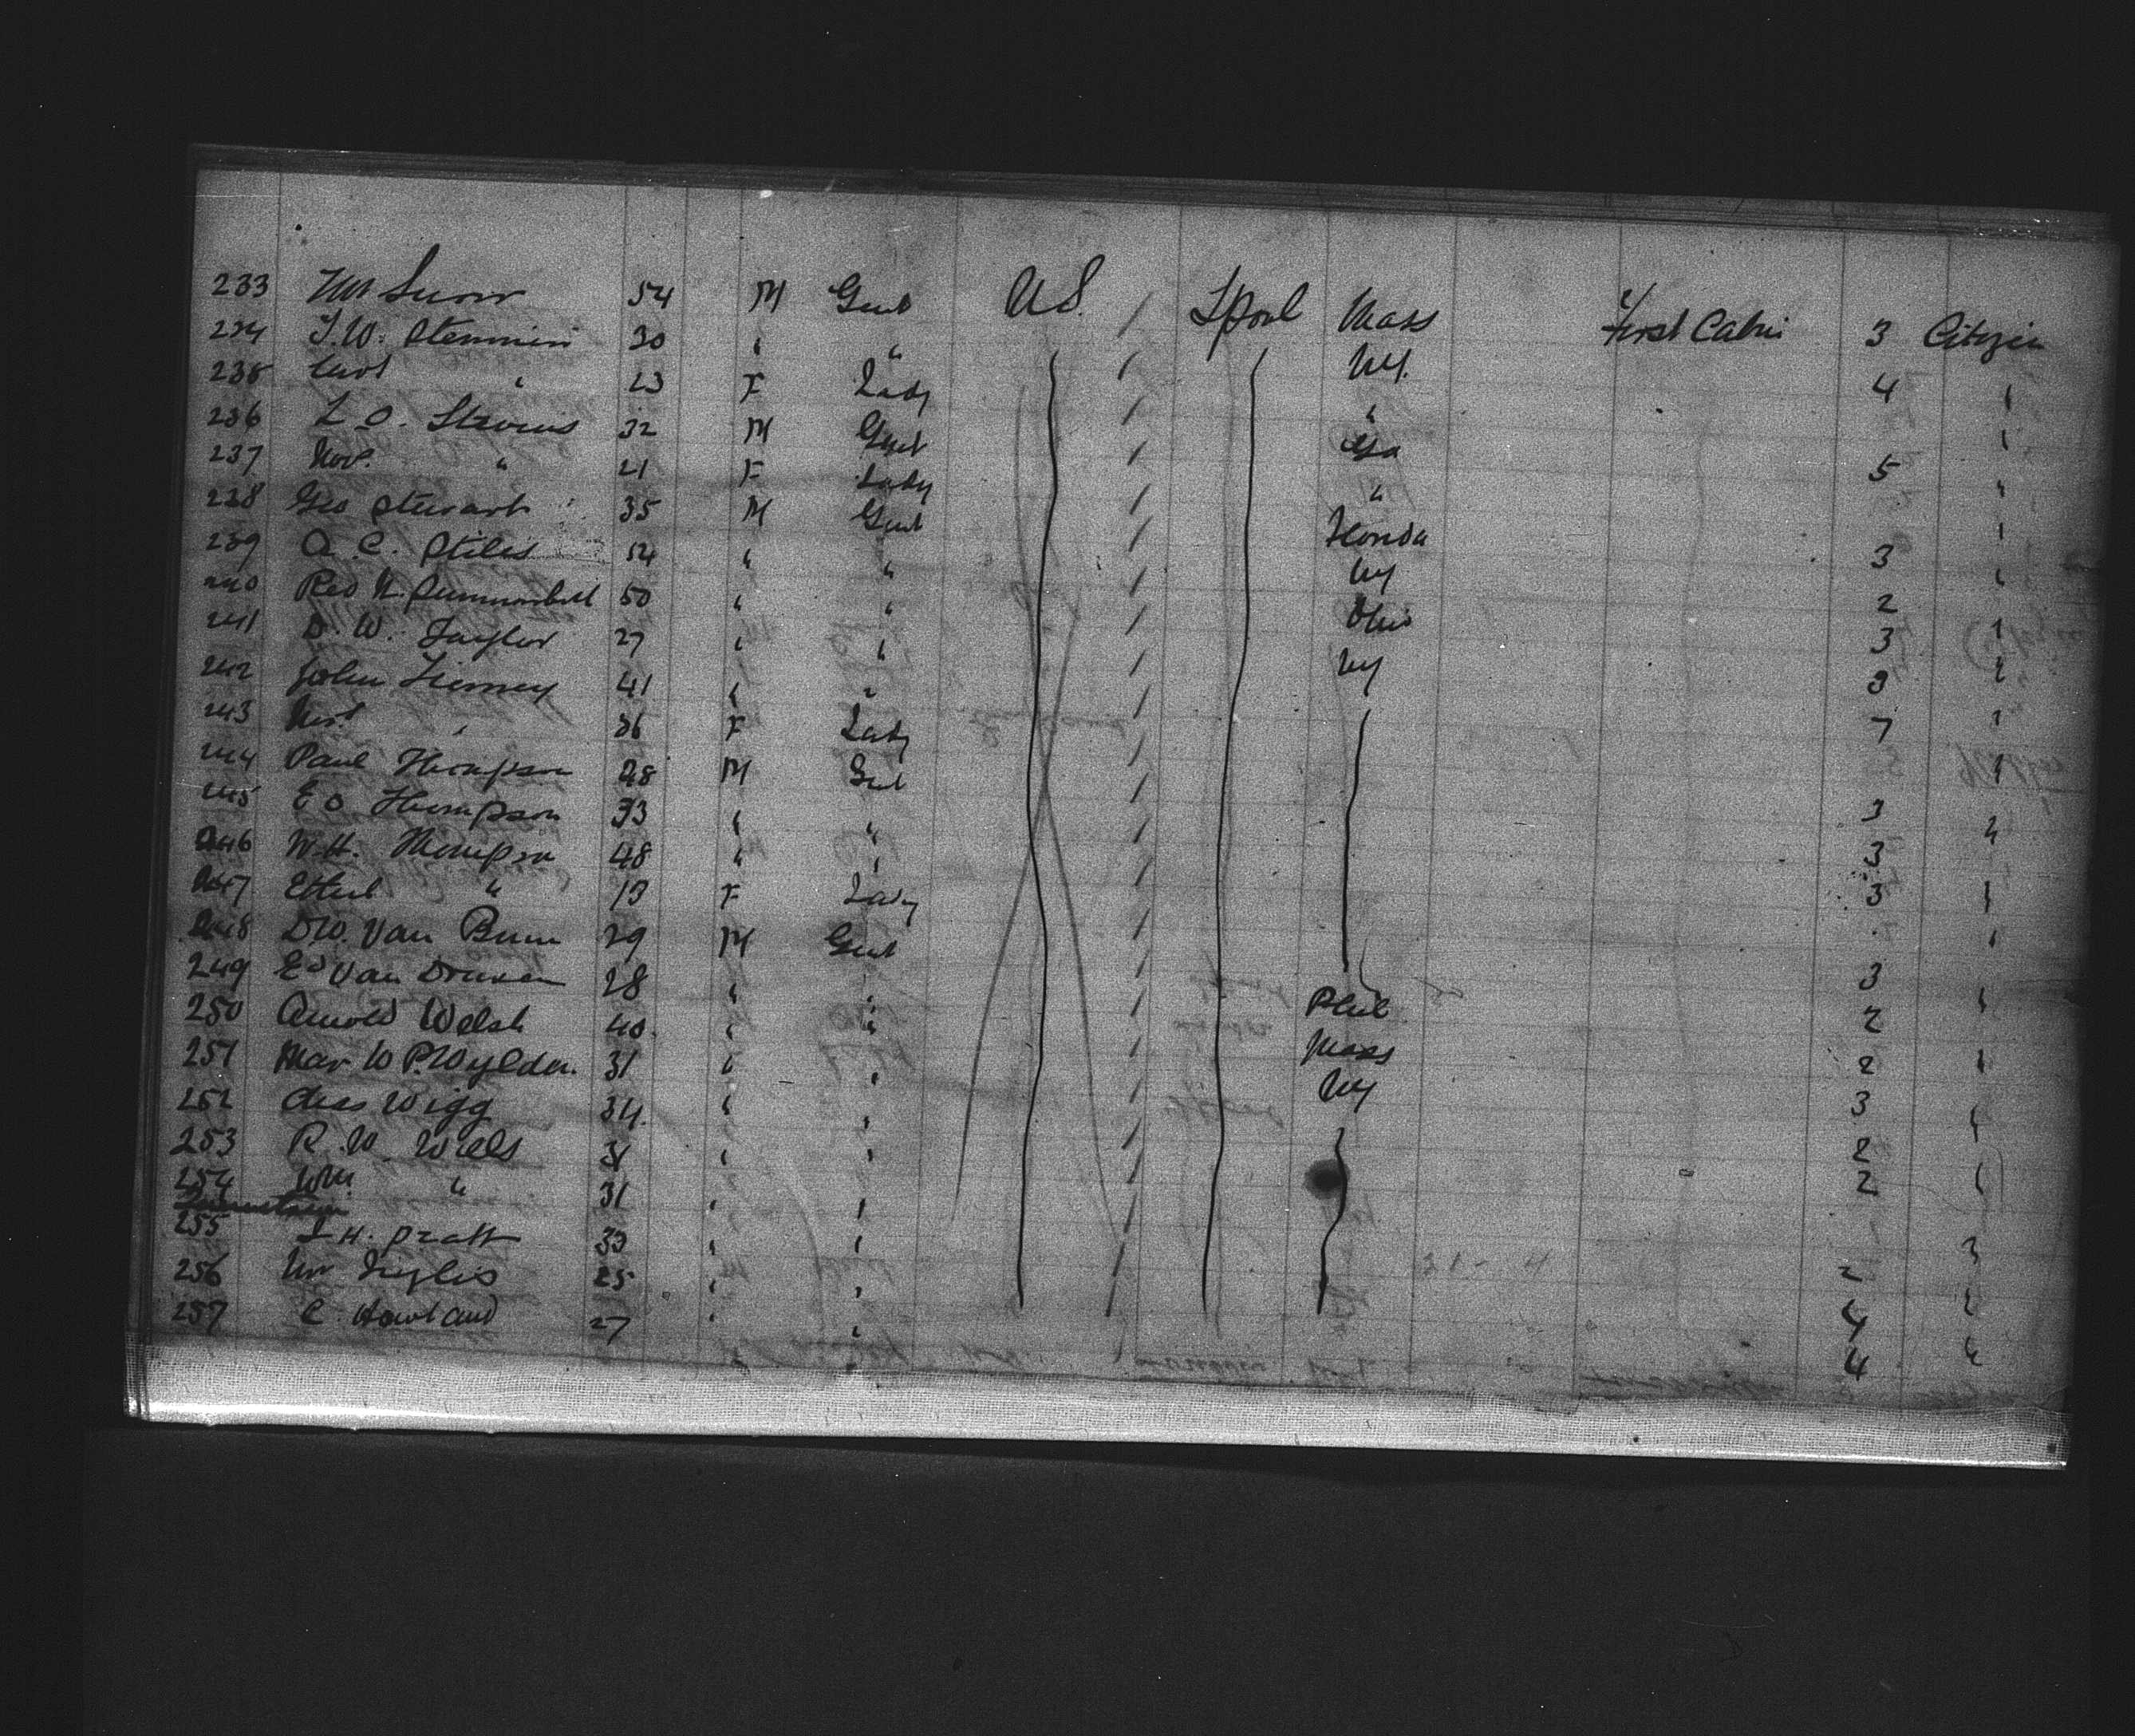 233 Mr Snow 54 M Gent U.S. / Lpool Mass First Cabin 3 Citizen
234 T.W. Stemmin 30 " " / NY. 4 "
235 Mrs " 23 F Lady / " "
236 L O. Stevens 32 M Gent / Ga 5 "
237 Mrs. " 21 F Lady / " "
238 Geo Stewart 35 M Gent / Florida 3 "
239 A. C. Stiles 54 " " / NY 2 "
240 Rev N. Summerbell 50 " " / Ohio 3 "
241 D. W. Taylor 27 " " / NY 3 "
242 John Tierney 41 " " / 7 "
243 Mrs " 36 F Lady / "
244 Paul Thompson 28 M Gent / 3 "
245 E O. Thompson 33 " " / 3 "
246 W.H. Thompson 48 " " / 3 "
247 Ethel " 13 F Lady / "
248 D.W. Van Buren 29 M Gent / 3 "
249 Ed Van Deusen 28 " " / 2 "
250 Arnold Welsh 40 " " / Phil 2 "
251 W P. Wylder. 31 " " / Mass 3 "
252 Chas Wigg 34. " " / NY 2 "
253 R. W. Wills 31 " " / 2 "
254 Wm " 31 " " /
255 L H. Pratt 33 " " / 2 "
256 Mr Inglis 25 " " / 4 "
257 C. Howland 27 " " / 4 "